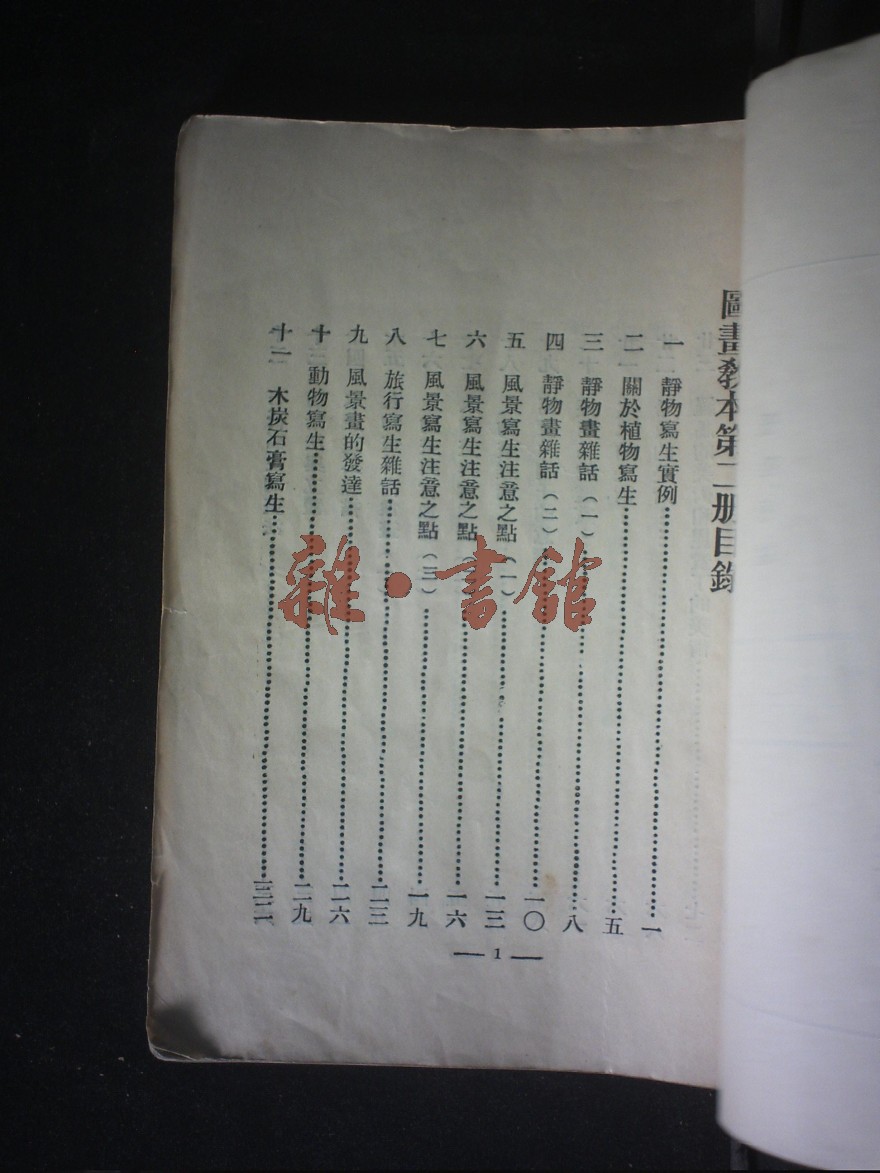 圖畫教本第二册目錄
一 靜物寫生實例……一
二 關於植物寫生……五
三 靜物畫雜話(一)……八
四 靜物畫雜話(二)……一〇
五 風景寫生注意之點(一)……一三
六 風景寫生注意之點……一六
七 風景寫生注意之點(三)……一九
八 旅行寫生雜話……二三
九 風景畫的發達……二六
十 動物寫生……二九
十一 木炭石膏寫生……三二
— 1 —
雜·書館